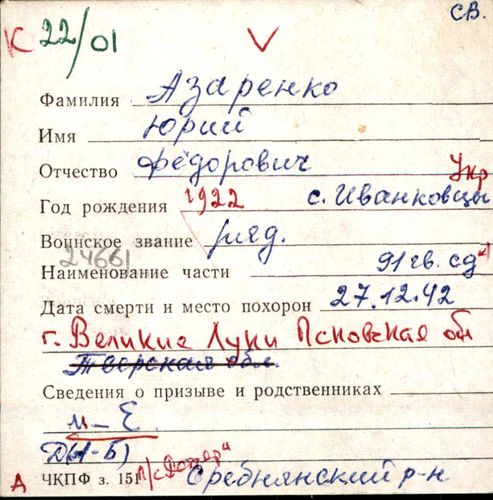 К 22/01 V СВ.
Фамилия Азаренко
Имя Юрий
Отчество Фёдорович
Укр
Год рождения 1922 с. Иванковцы
Воинское звание ряд.
24661
Наименование части 91 гв. сд
Дата смерти и место похорон 27.12.42
г. Великие Луки Псковская обл
Тверская обл.
Сведения о призыве и родственниках
м – Е.
Д(А-Б)
А ЧКПФ з. 151 Сребнянский р-н